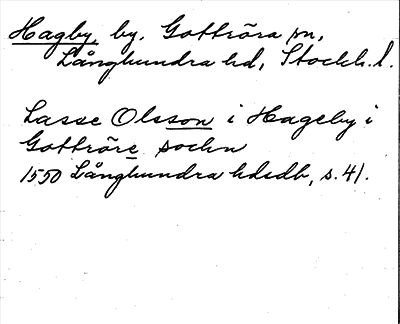 Hagby, by. Gottröra sn,
Långhundra hd, Stockh.l.
Lasse Olsson i Hageby i
Gottröre sochn
1550 Långhundra hdsdb, s. 41.